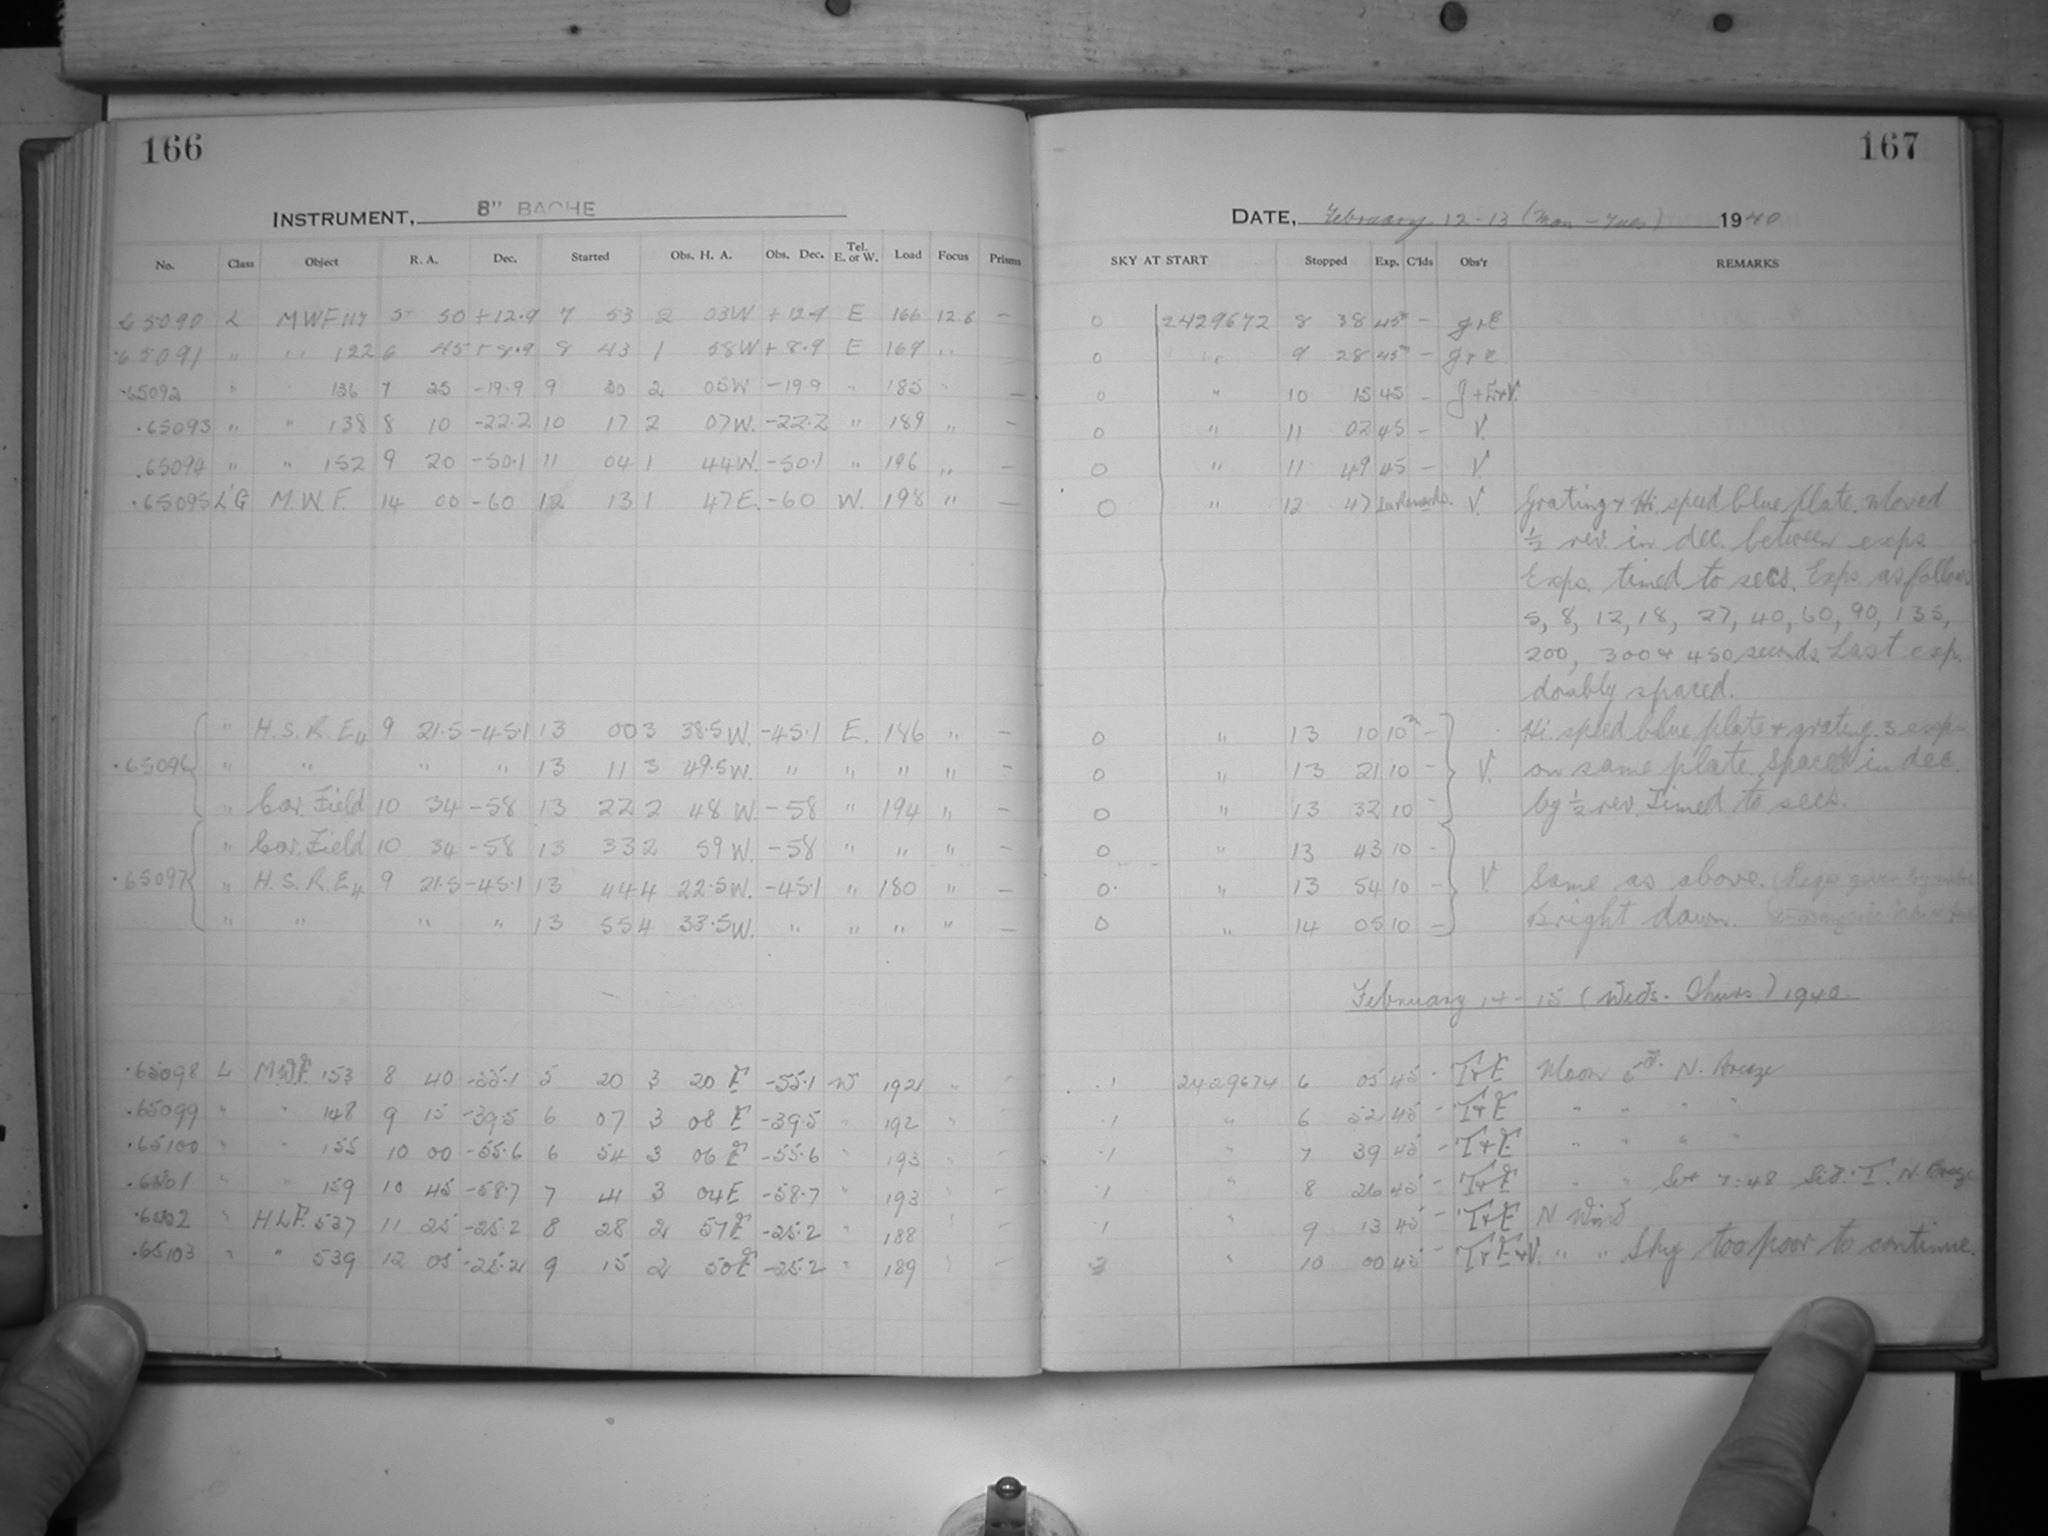 166
INSTRUMENT, 8" BACHE
No. Class Object R. A. Dec. Started Obs. H. A. Obs. Dec. Tel. E. or W. Load Focus Prisms
65090 L MWF 117 5 50 +12.9 7 53 2 03W +12.9 E 166 12.6 –
65091 " " 122 6 45 +8.9 8 43 1 58W +8.9 E 169 " –
65092 " " 136 7 25 -19.9 9 30 2 05W -19.9 " 185 " –
65093 " " 138 8 10 -22.2 10 17 2 07W. -22.2 " 189 " –
65094 " " 152 9 20 -50.1 11 04 1 44W. -50.1 " 196 " –
65095 L'G M.W.F. 14 00 -60 12 13 1 47E. -60 W. 198 " –
" H.S.R.E4 9 21.5 -45.1 13 00 3 38.5W. -45.1 E. 186 " –
65096 " " " " 13 11 3 49.5W. " " " " –
" Car. Field 10 34 -58 13 22 2 48 W. -58 " 194 " –
" Car. Field 10 34 -58 13 33 2 59W. -58 " " " –
65097 " H.S.R.E4 9 21.5 -45.1 13 44 4 22.5W. -45.1 " 180 " –
" " " " 13 55 4 33.5W. " " " " –
65098 L MWF. 153 8 40 -55.1 5 20 3 20 E -55.1 W 192 " –
65099 " " 148 9 15 -39.5 6 07 3 08 E -39.5 " 192 " –
65100 " " 155 10 00 -55.6 6 54 3 06 E -55.6 " 193 " –
65101 " " 159 10 45 -58.7 7 41 3 04E -58.7 " 193 " –
65102 " HLF. 537 11 25 -25.2 8 28 2 57E -25.2 " 188 " –
65103 " " 539 12 05 -25.2 9 15 2 50E -25.2 " 189 " –
167
DATE, February 12-13 (Mon – Tues) 1940
SKY AT START Stopped Exp. C'lds Obs'r REMARKS
0 2429672 8 38 45m –
0 " 9 28 45m –
0 " 10 15 45 –
0 " 11 02 45 – V.
0 " 11 49 45 – V.
0 " 12 47 See Remarks. V. Grating + Hi. speed blue plate. Moved
1/2 rev. in dec. between exps.
Exps. timed to secs. Exps as follows
5, 8, 12, 18, 27, 40, 60, 90, 135,
200, 300 + 450 seconds. Last exp.
doubly spaced.
0 " 13 10 10m – Hi. speed blue plate + grating. 3 exps.
0 " 13 21 10 – V. on same plate. Spaced in dec.
0 " 13 32 10 – by 1/2 rev. Timed to secs.
0 " 13 43 10 –
0 " 13 54 10 – V. Same as above.
0 " 14 05 10 – Bright dawn.
February 14 - 15 (Weds. - Thurs) 1940
.1 2429674 6 05 45 – T+E Moon N. Breeze
.1 " 6 52 45 – T+E " " " "
.1 " 7 39 45 – T+E " " " "
.1 " 8 26 45 – T+E " " Set 7:48 Sid. T. N. Breeze
.1 " 9 13 45 – T+E N Wind
" 10 00 45 – T+E+V. " " Sky too poor to continue.